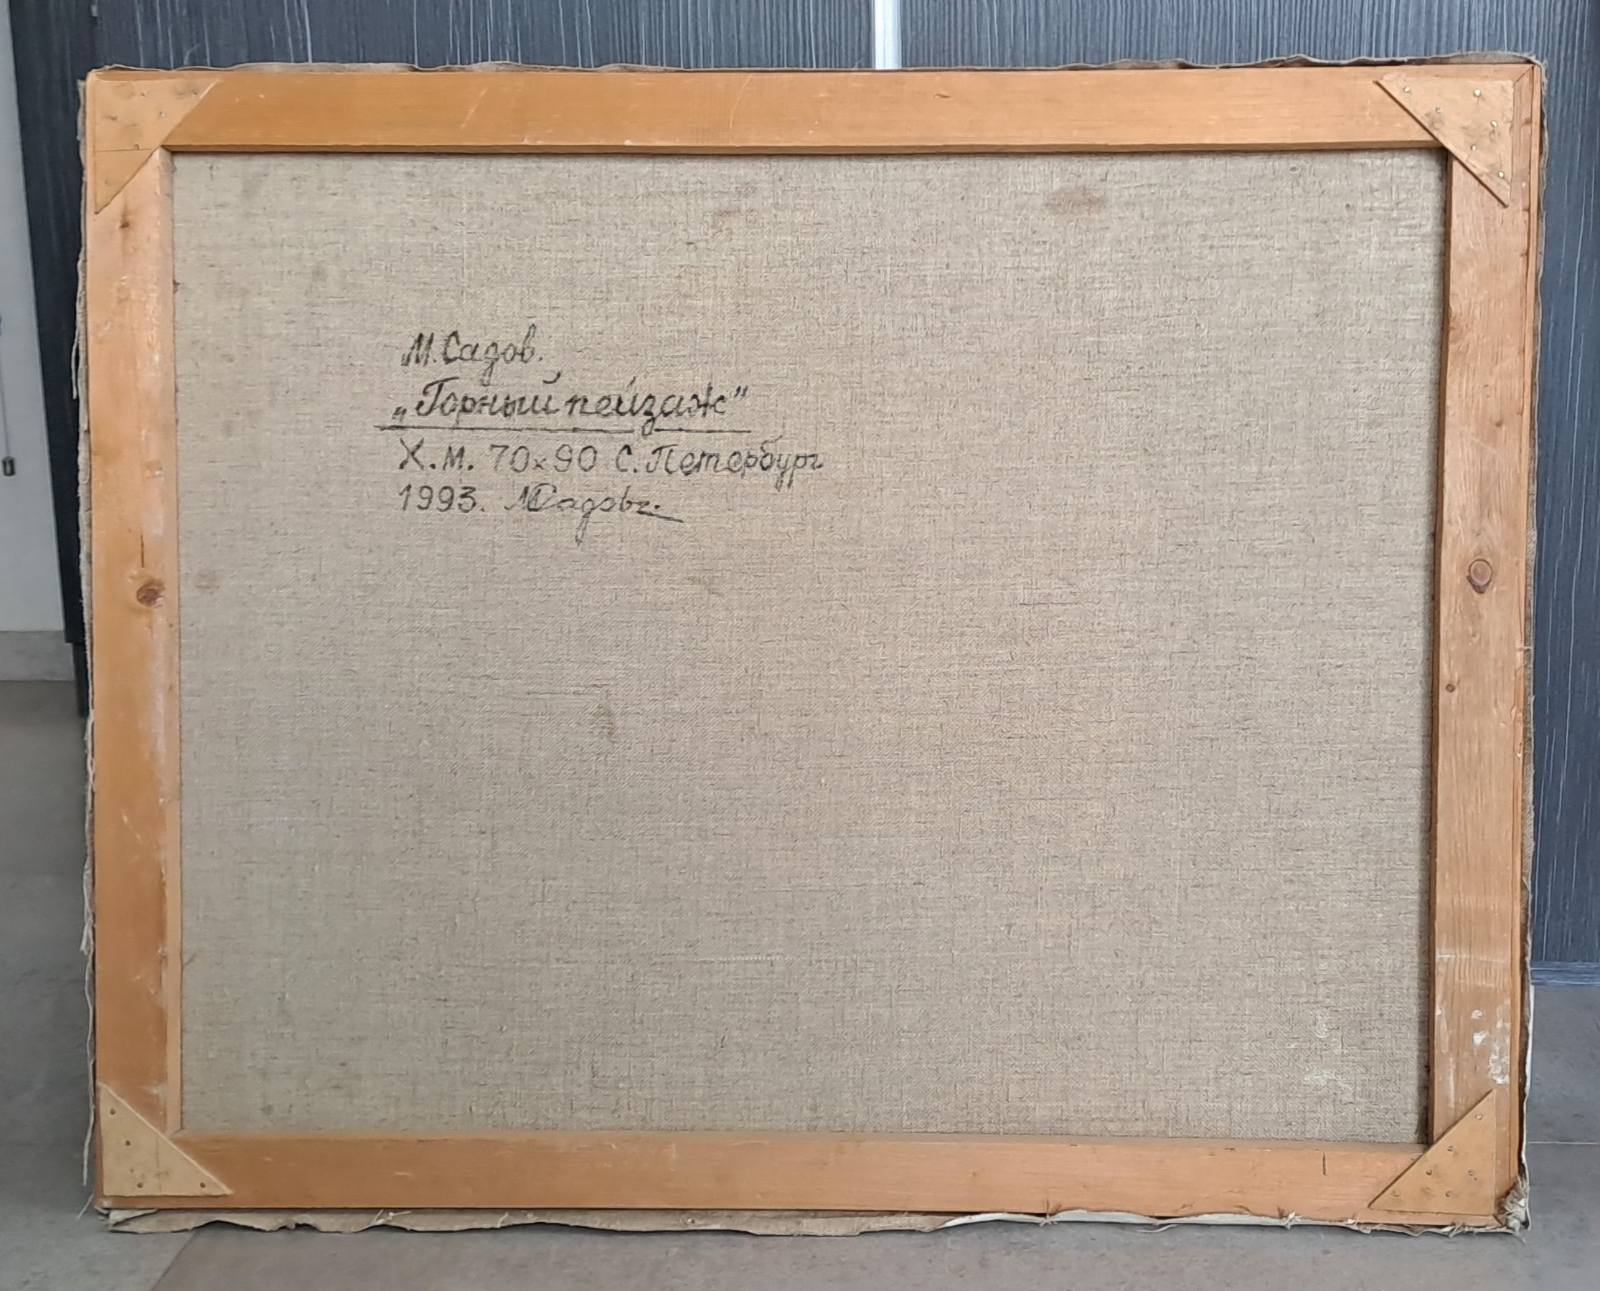 М. Садов.
„Горный пейзаж"
Х.М. 70х90 С. Петербург
1993. МСадов